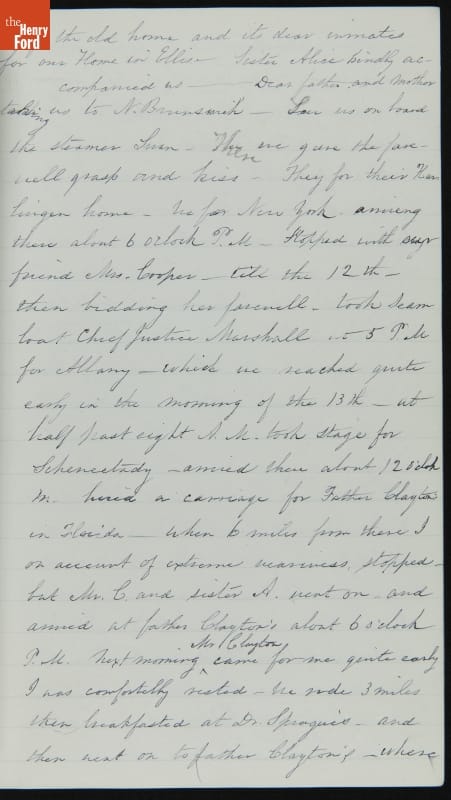 the Henry Ford
the old home and its dear inmates
for our Home in Ellis - Sister Alice kindly ac-
companied us - Dear father and Mother
taking us to N. Brunswick - Saw us on board
the steamer Swan - There we gave the fare-
well grasp and kiss - They for their Har
lingen home - We for New York arriving
there about 6 oclock P.M - Stopped with our
friend Mrs. Cooper - till the 12th -
then bidding her farewell - took steam
boat Chief Justice Marshall at 5 P.M
for Albany - which we reached quite
early in the morning of the 13th - at
half past eight A.M. took stage for
Schenectady - arrived there about 12 o'clok
M. hired a carriage for Father Clayton's
in Florida - when 6 miles from there I
on account of extreme weariness, stopped -
but Mr. C. and sister A. went on - and
arrived at father Clayton's about 6 o'clock
P.M. Next morning Mr Clayton came for me quite early
I was comfortelly rested - We rode 3 miles
then breakfasted at Dr. Sprague's - and
then went on to father Clayton's - where